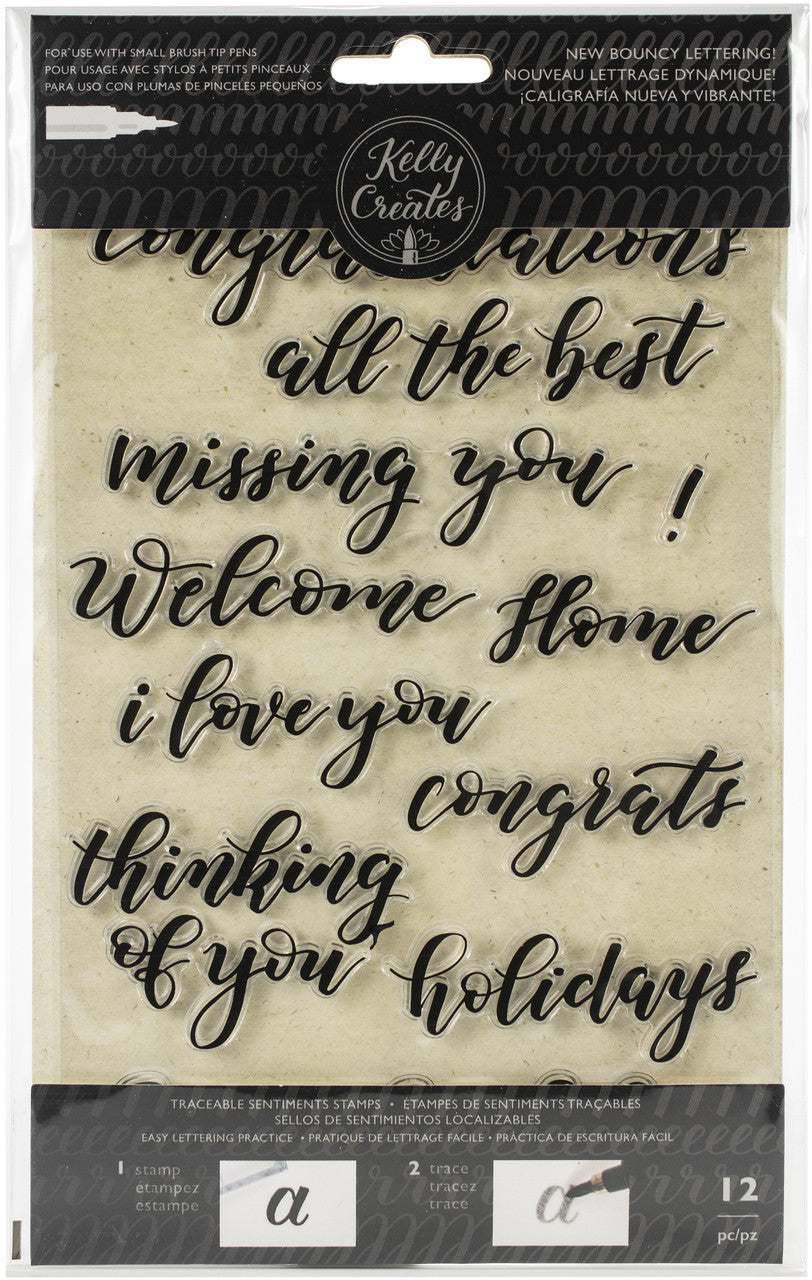 FOR USE WITH SMALL BRUSH TIP PENS
POUR USAGE AVEC STYLOS À PETITS PINCEAUX
PARA USO CON PLUMAS DE PINCELES PEQUEÑOS
NEW BOUNCY LETTERING!
NOUVEAU LETTRAGE DYNAMIQUE!
¡CALIGRAFÍA NUEVA Y VIBRANTE!
Kelly
Creates
all the best
missing you
!
Welcome
Home
i love you
congrats
thinking
of you
holidays
TRACEABLE SENTIMENTS STAMPS • ÉTAMPES DE SENTIMENTS TRAÇABLES
SELLOS DE SENTIMIENTOS LOCALIZABLES
EASY LETTERING PRACTICE • PRATIQUE DE LETTRAGE FACILE • PRÁCTICA DE ESCRITURA FÁCIL
1 stamp
étampez
estampe
a
2 trace
tracez
trace
a
12
pc/pz